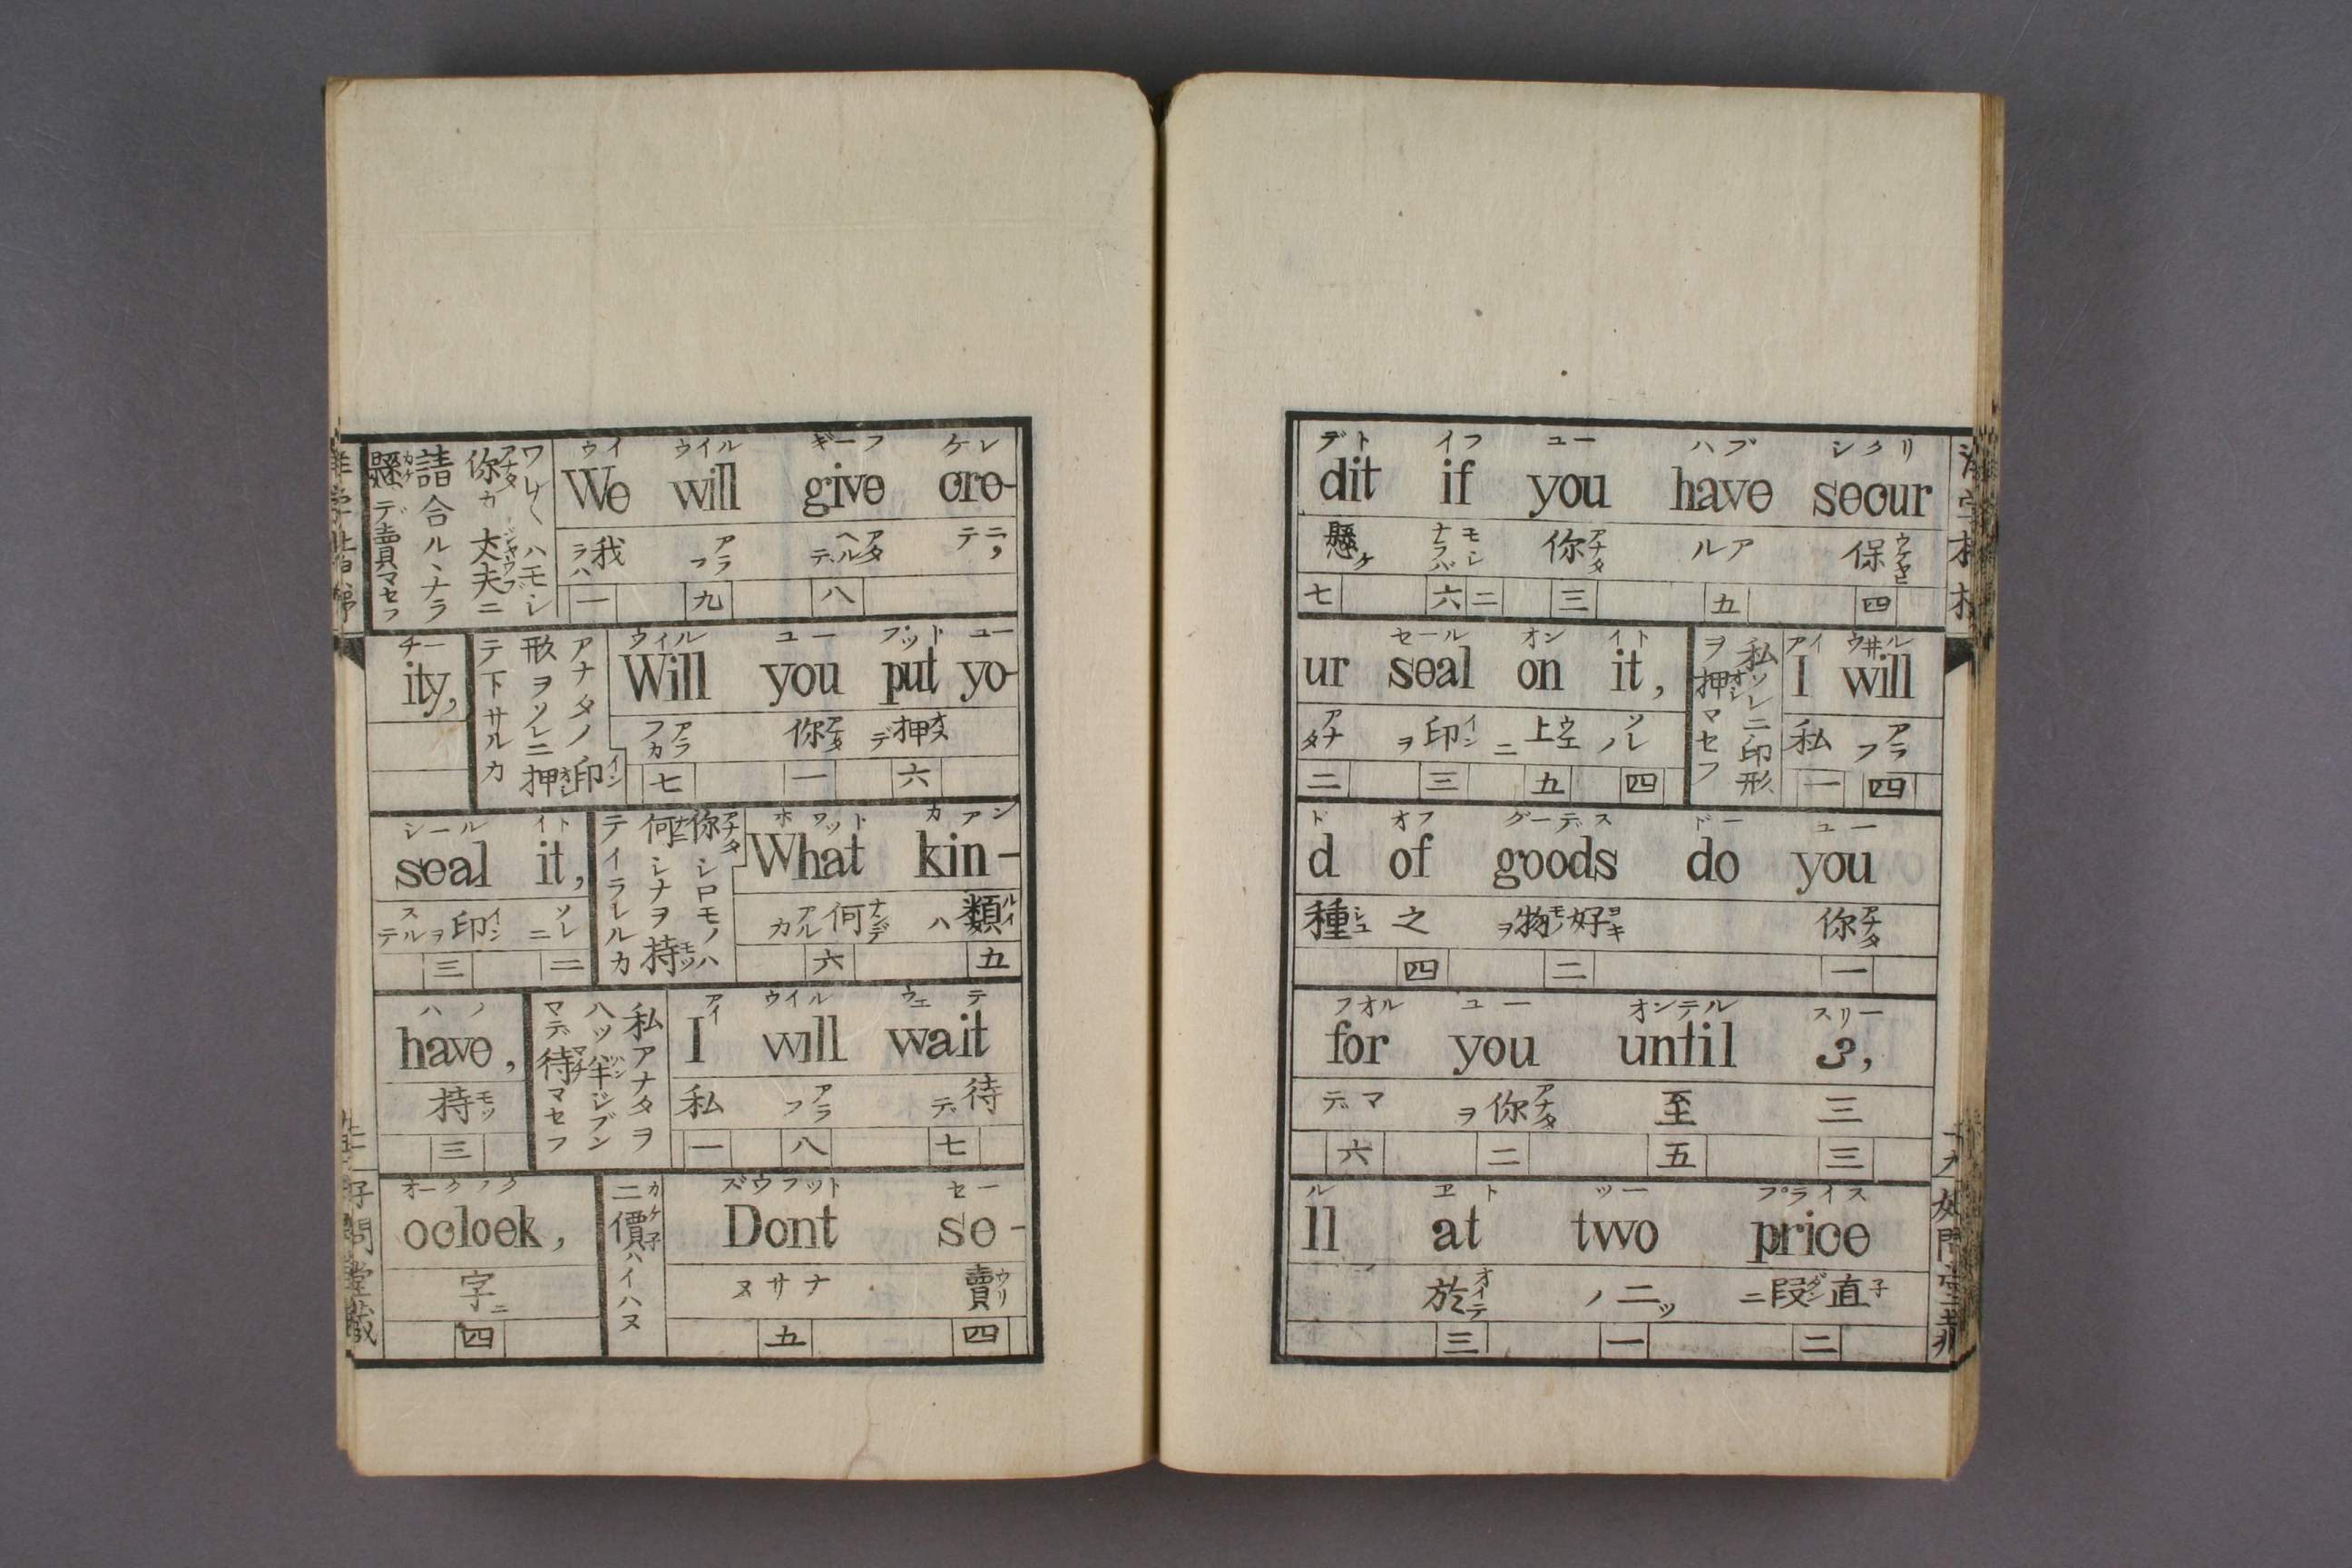 ワレ〱ハモシ
你アナタカ大夫ジヤウブニ
請合ルヽナラ
懸カケデ賣マセフ
ウイ ウイル ギーフ ケレ デト イフ ユー ハブ シクリ
We will give cre- dit if you have secur
我ラハ アラフ アタヘルデ ニテ, 懸ケ モシナラバ 你アナタ アル 保ウケヤヒ
一 九 八 七 六 二 三 五 四
チー
ity,
アナタノ印イン
形ヲソレニ押オシ
テ下サルカ
ウィル ユー プット ユー セール オン イト
Will you put yo- ur seal on it,
アラフカ 你アナタ 押オスデ アナタ 印インヲ 上ウエニ ソレノ
七 一 六 二 三 五 四
私ソレニ印形
ヲ押オシマセフ
アイ ウ井ル
I will
私 アラフ
一 四
シール イト
seal it,
印インヲスルテ ソレニ
三 二
你アナタシロモノハ
何ナニシナヲ持モツ
テイラレルカ
ホワット カアン ド オフ グーデス ドー ユー
What kin- d of goods do you
何ナンデアルカ 類ルイハ 種シユ 之 好ヨキ物モノヲ 你アナタ
六 五 四 二 一
ハノ
have,
持モツ
三
私アナタヲ
八ツ半ハンジブン
マデ待マチマセフ
アイ ウイル ウェテ フオル ユー オンテル スリー
I will wait for you until 3,
私 アラフ 待デ マデ 你アナタヲ 至 三
一 八 七 六 二 五 三
オークロク
oclock,
字ニ
四
二價カケ子ハイハヌ
ズウフット セー ル ヱト ツー プライス
Dont se- ll at two price
ナサヌ 賣ウリ 於オイテ 二ツノ 直子段ダンニ
五 四 三 一 二
好問堂蔵